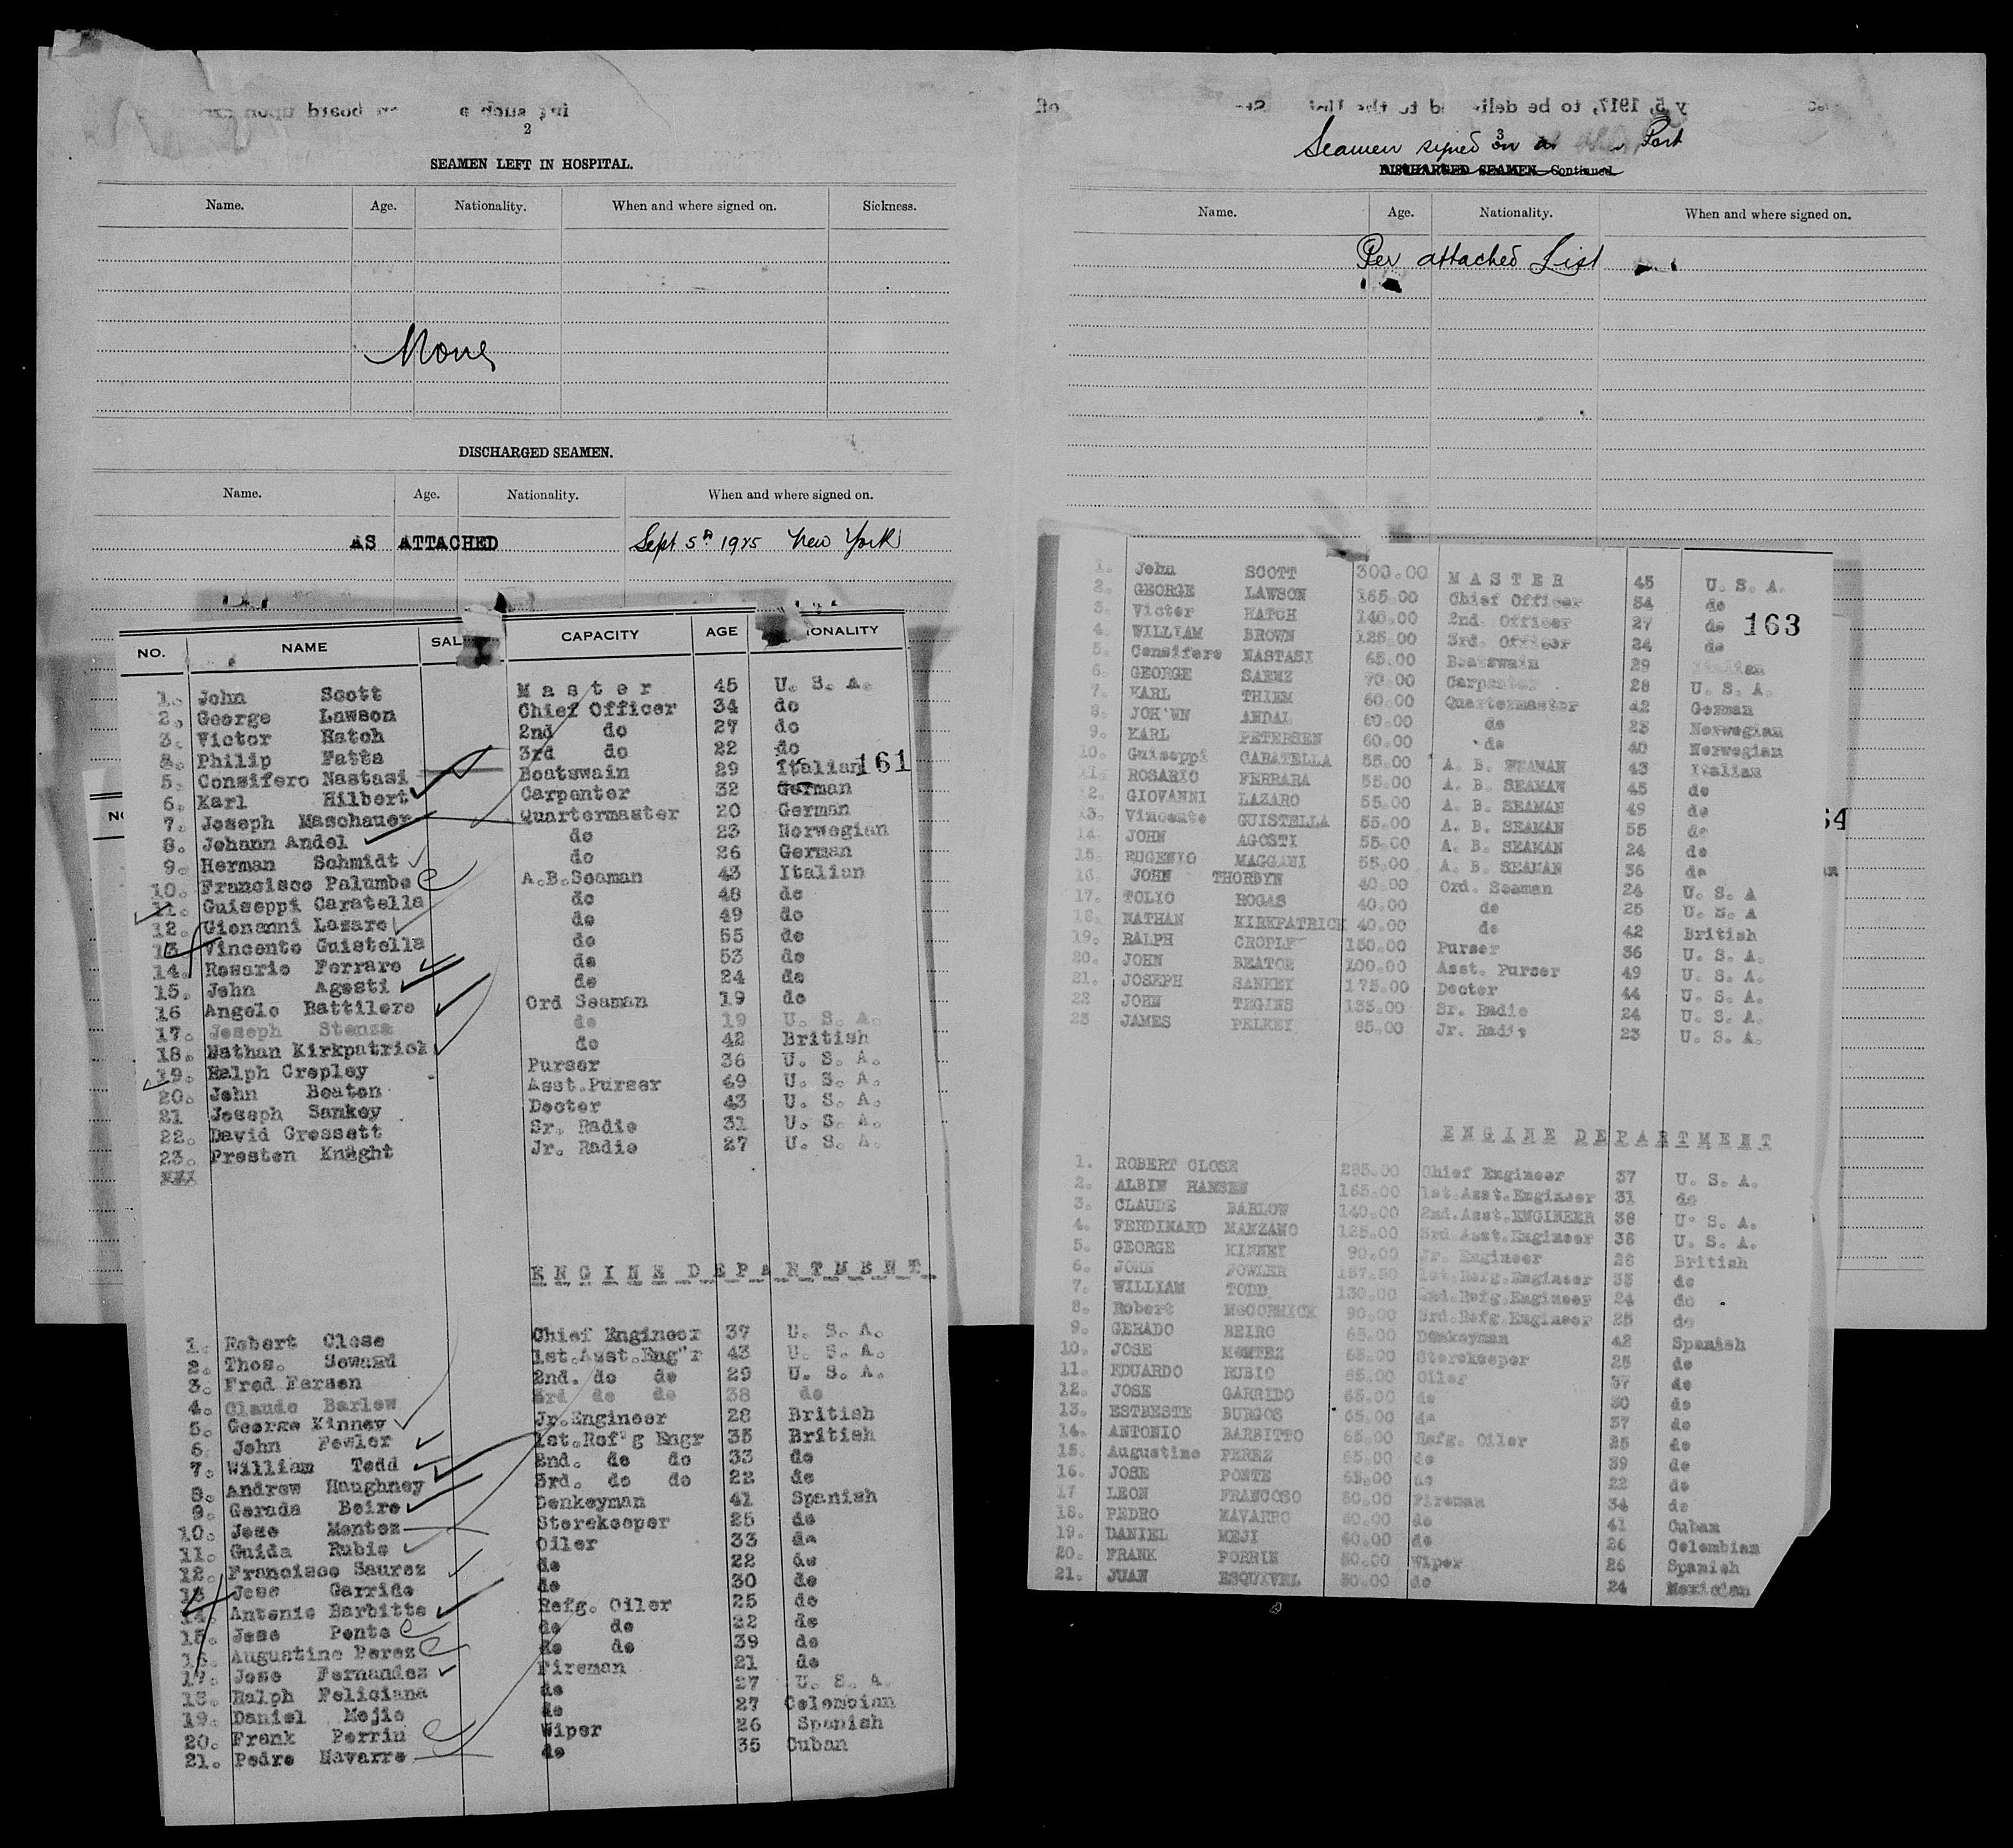 2
SEAMEN LEFT IN HOSPITAL.
Name. Age. Nationality. When and where signed on. Sickness.
None
DISCHARGED SEAMEN.
Name. Age. Nationality. When and where signed on.
AS ATTACHED Sept 5th 1925 New York
NO. NAME SAL CAPACITY AGE IONALITY
1. John Scott Master 45 U. S. A.
2. George Lawson Chief Officer 34 do
3. Victor Hatch 2nd do 27 do
4. Philip Fatta 3rd do 22 do
5. Consifero Nastasi Boatswain 29 Italian
161
6. Karl Hilbert Carpenter 32 German
7. Joseph Maschauer Quartermaster 20 German
8. Johann Andel do 23 Norwegian
9. Herman Schmidt do 26 German
10. Francisco Palumbo A.B.Seaman 43 Italian
11. Guiseppi Caratella do 48 do
12. Gionanni Lazaro do 49 do
13. Vincento Guistella do 55 do
14. Rosario Ferraro do 53 do
15. John Agosti do 24 do
16 Angelo Battilero Ord Seaman 19 do
17. Joseph Stenza do 19 U. S. A.
18. Nathan Kirkpatrick do 42 British
19. Ralph Cropley Purser 36 U. S. A.
20. John Beaton Asst.Purser 49 U. S. A.
21 Joseph Sankey Doctor 43 U. S. A.
22. David Gressett Sr. Radio 31 U. S. A.
23. Preston Knäght Jr. Radio 27 U. S. A.
ENGINE DEPARTMENT
1. Robert Close Chief Engineer 37 U. S. A.
2. Thos. Seward 1st.Asst.Eng"r 43 U. S. A.
3. Fred Farsen 2nd. do do 29 U. S. A.
4. Claude Barlow 3rd do do 38 do
5. George Kinney Jr.Engineer 28 British
6. John Fowler 1st.Ref'g Engr 35 British
7. William Todd 2nd. do do 33 do
8. Andrew Haughney 3rd. do do 22 do
9. Gerada Beiro Donkeyman 41 Spanish
10. Jose Montez Storekeeper 25 do
11. Guida Rubio Oiler 33 do
12. Francisco Saurez do 22 do
13 Jose Garrido do 30 do
14. Antonio Barbitto Refg. Oiler 25 do
15. Jose Ponte do do 22 do
16. Augustino Perez do do 39 do
17. Jose Fernandez Fireman 21 do
18. Ralph Feliciana do 27 U. S. A.
19. Daniel Mejio do 27 Colombian
20. Frank Perrin Wiper 26 Spanish
21. Pedro Navarro do 35 Cuban
3
Seamen signed on Port
DISCHARGED SEAMEN—Continued.
Name. Age. Nationality. When and where signed on.
Per attached List
1. John SCOTT 300.00 MASTER 45 U. S. A.
2. GEORGE LAWSON 165.00 Chief Officer 34 do
3. Victor HATCH 140.00 2nd. Officer 27 do
163
4. WILLIAM BROWN 125.00 3rd. Officer 24 do
5. Consifero NASTASI 65.00 Boatswain 29 Italian
6. GEORGE SAENZ 70.00 Carpenter 28 U. S. A.
7. KARL THIEM 60.00 Quartermaster 42 German
8. JOH'WN ANDAL 60.00 do 23 Norwegian
9. KARL PETERSEN 60.00 do 40 Norwegian
10. Guiseppi CARATELLA 55.00 A. B. SEAMAN 43 Italian
11. ROSARIO FERRARA 55.00 A. B. SEAMAN 45 do
12. GIOVANNI LAZARO 55.00 A. B. SEAMAN 49 do
13. Vincente GUISTELLA 55.00 A. B. SEAMAN 55 do
14. JOHN AGOSTI 55.00 A. B. SEAMAN 24 do
15. EUGENIO MAGGANI 55.00 A. B. SEAMAN 36 do
16. JOHN THORDYN 40.00 Ord. Seaman 24 U. S. A
17. TOLIO ROGAS 40.00 do 25 U. S. A
18. NATHAN KIRKPATRICK 40.00 do 42 British
19. RALPH CROPLEY 150.00 Purser 36 U. S. A.
20. JOHN BEATON 100.00 Asst. Purser 49 U. S. A.
21. JOSEPH SANKEY 175.00 Doctor 44 U. S. A.
22 JOHN TEGINS 135.00 Sr. Radio 24 U. S. A.
23 JAMES PELKEY 85.00 Jr. Radio 23 U. S. A.
ENGINE DEPARTMENT
1. ROBERT CLOSE 285.00 Chief Engineer 37 U. S. A.
2. ALBIN HANSEN 165.00 1st.Asst.Engineer 31 do
3. CLAUDE BARLOW 140.00 2nd.Asst.ENGINEER 38 U. S. A.
4. FERDINAND MANZANO 125.00 3rd.Asst.Engineer 36 U. S. A.
5. GEORGE KINNEY 90.00 Jr. Engineer 28 British
6. JOHN FOWLER 187.50 1st.Refg.Engineer 35 do
7. WILLIAM TODD 130.00 2nd.Refg.Engineer 24 do
8. Robert McCORMICK 90.00 3rd.Refg.Engineer 25 do
9. GERADO BEIRO 65.00 Donkeyman 42 Spanish
10. JOSE MONTEZ 65.00 Storekeeper 25 do
11. EDUARDO RUBIO 65.00 Oiler 37 do
12. JOSE GARRIDO 65.00 do 30 do
13. ESTBESTE BURGOS 65.00 do 37 do
14. ANTONIO BARBITTO 65.00 Refg. Oiler 25 do
15. Augustine PEREZ 65.00 do 39 do
16. JOSE PONTE 65.00 do 22 do
17 LEON FRANCOSO 60.00 Fireman 34 do
18. PEDRO NAVARRO 60.00 do 41 Cuban
19. DANIEL MEJI 60.00 do 26 Colombian
20. FRANK PORRIN 50.00 Wiper 26 Spanish
21. JUAN ESQUIVEL 50.00 do 24 Mexician